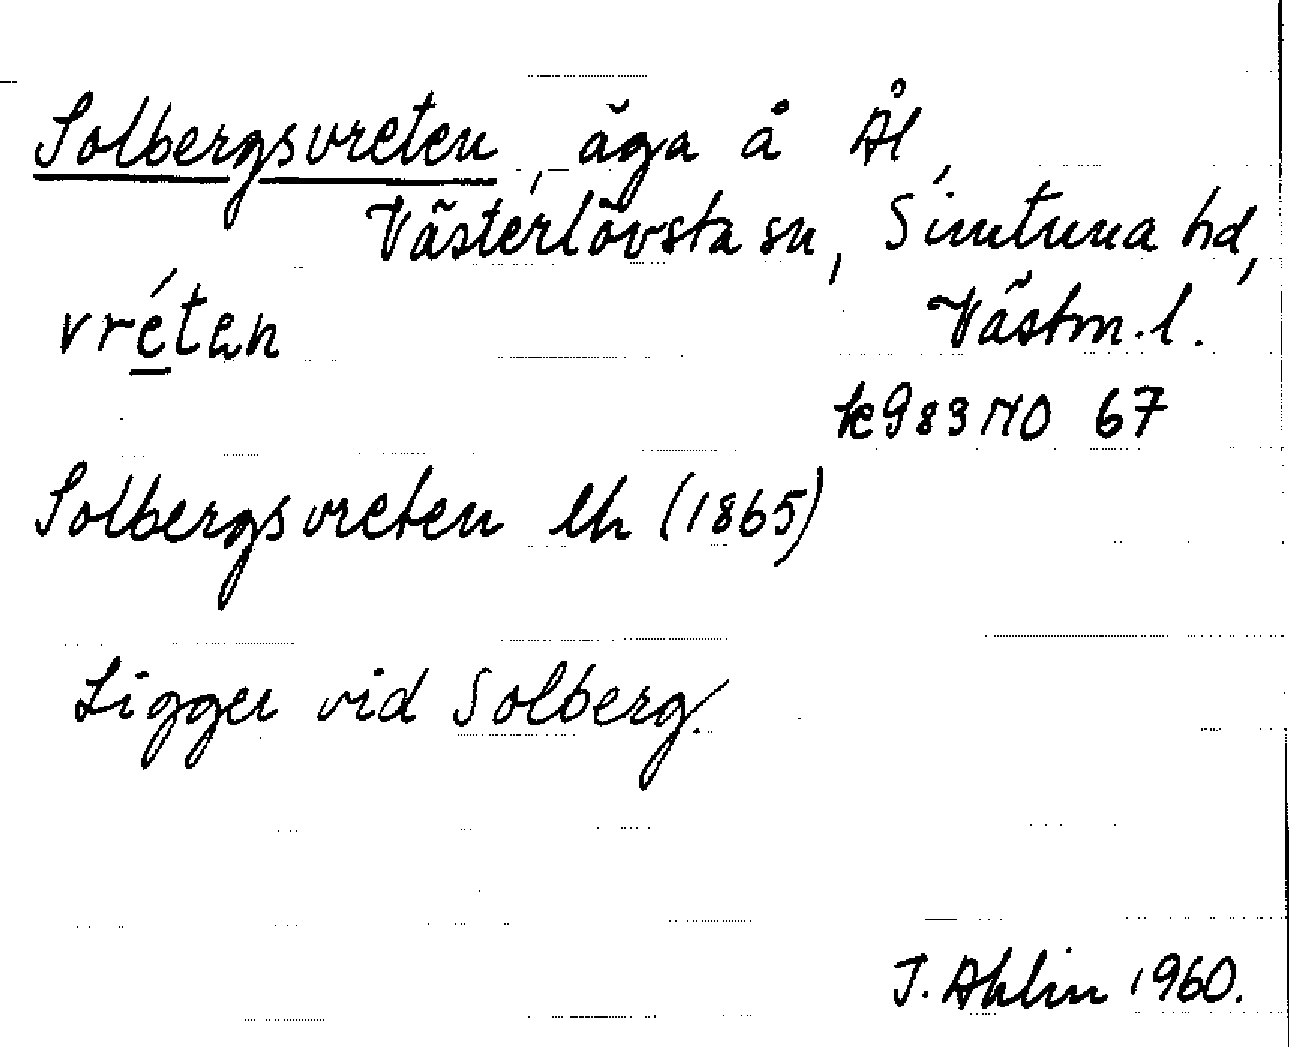 Solbergsvreten, äga å Ål,
Västerlövsta sn, Simtuna hd,
vréten Västm. l.
k983 NO 67
Solbergsvreten lh (1865)
Ligger vid Solberg.
J. Ahlin 1960.